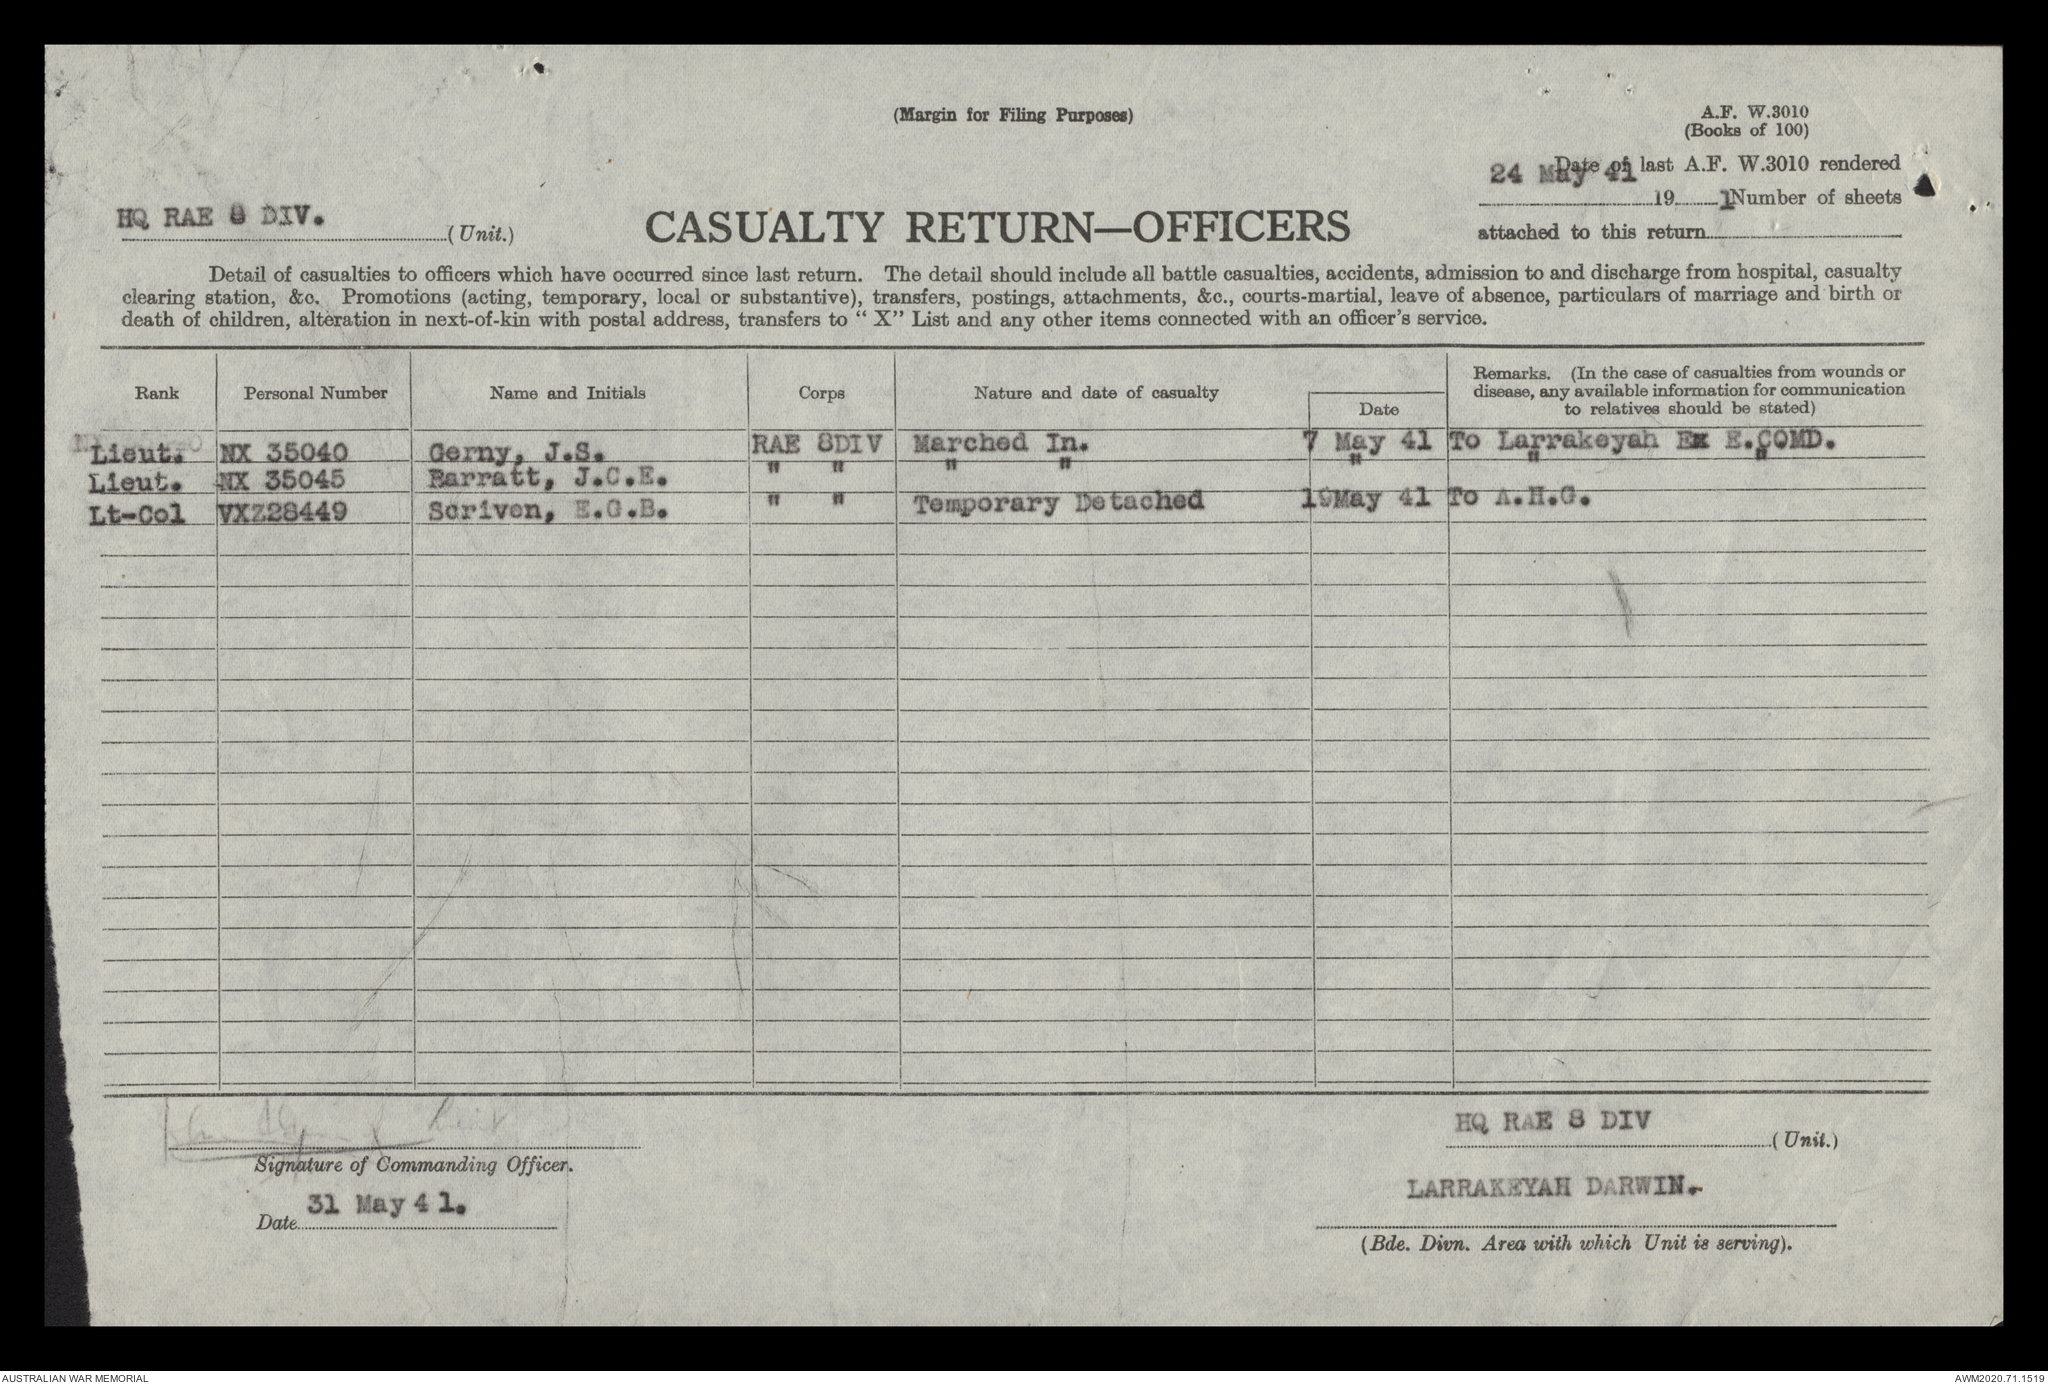 (Margin for Filing Purposes)
A.F. W.3010
(Books of 100)
Date of last A.F. W.3010 rendered
24 May 41
19 1 Number of sheets
attached to this return
HQ RAE 8 DIV.
(Unit.)
CASUALTY RETURN—OFFICERS
Detail of casualties to officers which have occurred since last return. The detail should include all battle casualties, accidents, admission to and discharge from hospital, casualty
clearing station, &c. Promotions (acting, temporary, local or substantive), transfers, postings, attachments, &c., courts-martial, leave of absence, particulars of marriage and birth or
death of children, alteration in next-of-kin with postal address, transfers to “ X” List and any other items connected with an officer's service.
Rank Personal Number Name and Initials Corps Nature and date of casualty Date
Remarks. (In the case of casualties from wounds or
disease, any available information for communication
to relatives should be stated)
Lieut. NX 35040 Gerny, J.S. RAE 8DIV Marched In. 7 May 41 To Larrakeyah Ex E.COMD.
Lieut. NX 35045 Barratt, J.C.E. " " " " " " "
Lt-Col VXZ28449 Scriven, E.G.B. " " Temporary Detached 19May 41 To A.H.G.
Lieut
Signature of Commanding Officer.
31 May 41.
Date
HQ RAE 8 DIV
(Unit.)
LARRAKEYAH DARWIN.
(Bde. Divn. Area with which Unit is serving).
AUSTRALIAN WAR MEMORIAL
AWM2020.71.1519